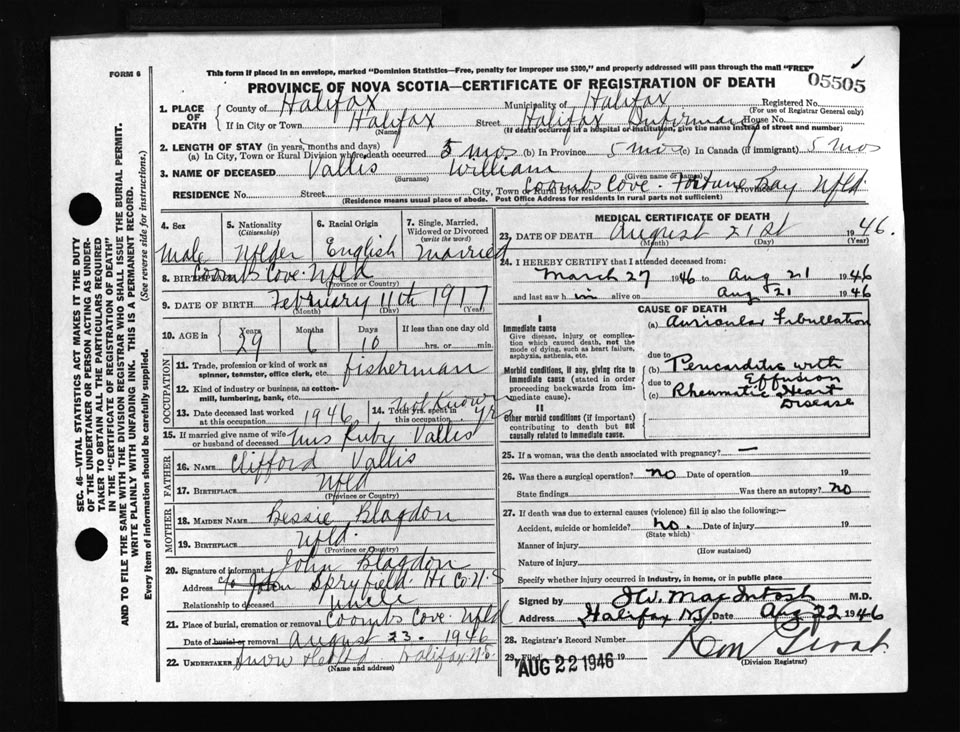 FORM 6
This form if placed in an envelope, marked "Dominion Statistics—Free, penalty for improper use $300," and properly addressed will pass through the mail "FREE"
PROVINCE OF NOVA SCOTIA—CERTIFICATE OF REGISTRATION OF DEATH
05505
1. PLACE OF DEATH
County of Halifax Municipality of Halifax Registered No.
(For use of Registrar General only)
If in City or Town Halifax Street Halifax Infirmary House No.
(Name) (If death occurred in a hospital or institution, give name instead of street and number)
2. LENGTH OF STAY (in years, months and days)
(a) In City, Town or Rural Division where death occurred 5 mos (b) In Province 5 mos (c) In Canada (if immigrant) 5 mos
3. NAME OF DECEASED Vallis William
(Surname) (Given name or names)
RESIDENCE No. Street City, Town or Rural Division Coombs Cove. Fortune Bay Province Nfld.
(Residence means usual place of abode. Post Office Address for residents in rural parts not sufficient)
4. Sex
5. Nationality (Citizenship)
6. Racial Origin
7. Single, Married, Widowed or Divorced (write the word)
Male Nflder English Married
8. BIRTHPLACE Coombs Cove. Nfld
(Province or Country)
9. DATE OF BIRTH February 11th 1917
(Month) (Day) (Year)
10. AGE in Years Months Days If less than one day old
29 6 10 hrs. or min.
OCCUPATION
11. Trade, profession or kind of work as spinner, teamster, office clerk, etc. fisherman
12. Kind of industry or business, as cotton-mill, lumbering, bank, etc.
13. Date deceased last worked at this occupation 1946
14. Total yrs. spent in this occupation Not Known yrs
15. If married give name of wife or husband of deceased Mrs Ruby Vallis
FATHER
16. NAME Clifford Vallis
17. BIRTHPLACE Nfld
(Province or Country)
MOTHER
18. MAIDEN NAME Bessie Blagdon
19. BIRTHPLACE Nfld.
(Province or Country)
20. Signature of informant John Blagdon
Address Spryfield. Hx Co. N.S
Relationship to deceased Uncle
21. Place of burial, cremation or removal Coombs Cove. Nfld
Date of burial or removal August 23. 1946
22. UNDERTAKER Snow Halifax. N.S.
(Name and address)
MEDICAL CERTIFICATE OF DEATH
23. DATE OF DEATH August 21st 1946.
(Month) (Day) (Year)
24. I HEREBY CERTIFY that I attended deceased from:
March 27 1946 to Aug 21 1946
and last saw him alive on Aug 21 1946
CAUSE OF DEATH
I
Immediate cause
Give disease, injury or complication which caused death, not the mode of dying, such as heart failure, asphyxia, asthenia, etc.
(a) Auricular Fibrillation
due to
Morbid conditions, if any, giving rise to immediate cause (stated in order proceeding backwards from immediate cause).
(b) Pericarditis with Effusion
due to
(c) Rheumatic Heart Disease
II
Other morbid conditions (if important) contributing to death but not causally related to immediate cause.
25. If a woman, was the death associated with pregnancy? —
26. Was there a surgical operation? no Date of operation 19
State findings Was there an autopsy? no
27. If death was due to external causes (violence) fill in also the following:—
Accident, suicide or homicide? no. Date of injury 19
(State which)
Manner of injury
(How sustained)
Nature of injury
Specify whether injury occurred in industry, in home, or in public place
Signed by MacIntosh M.D.
Address Halifax NS Date Aug 22 1946
28. Registrar's Record Number
29. Filed AUG 22 1946 19
(Division Registrar)
SEC. 46—VITAL STATISTICS ACT MAKES IT THE DUTY
OF THE UNDERTAKER OR PERSON ACTING AS UNDER-
TAKER TO OBTAIN ALL THE PARTICULARS REQUIRED
IN THE "CERTIFICATE OF REGISTRATION OF DEATH"
AND TO FILE THE SAME WITH THE DIVISION REGISTRAR WHO SHALL ISSUE THE BURIAL PERMIT.
WRITE PLAINLY WITH UNFADING INK. THIS IS A PERMANENT RECORD.
Every item of information should be carefully supplied. (See reverse side for instructions.)